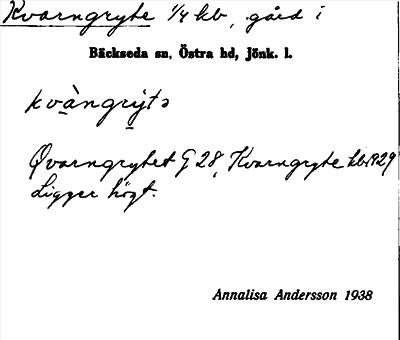 Kvarngryte 1/4 kb, gård i
Bäckseda sn, Östra hd, Jönk. l.
kvàngrýtə
Qvarngrytet G 28, Kvarngryte kbr 1929
Ligger högt.
Annalisa Andersson 1938